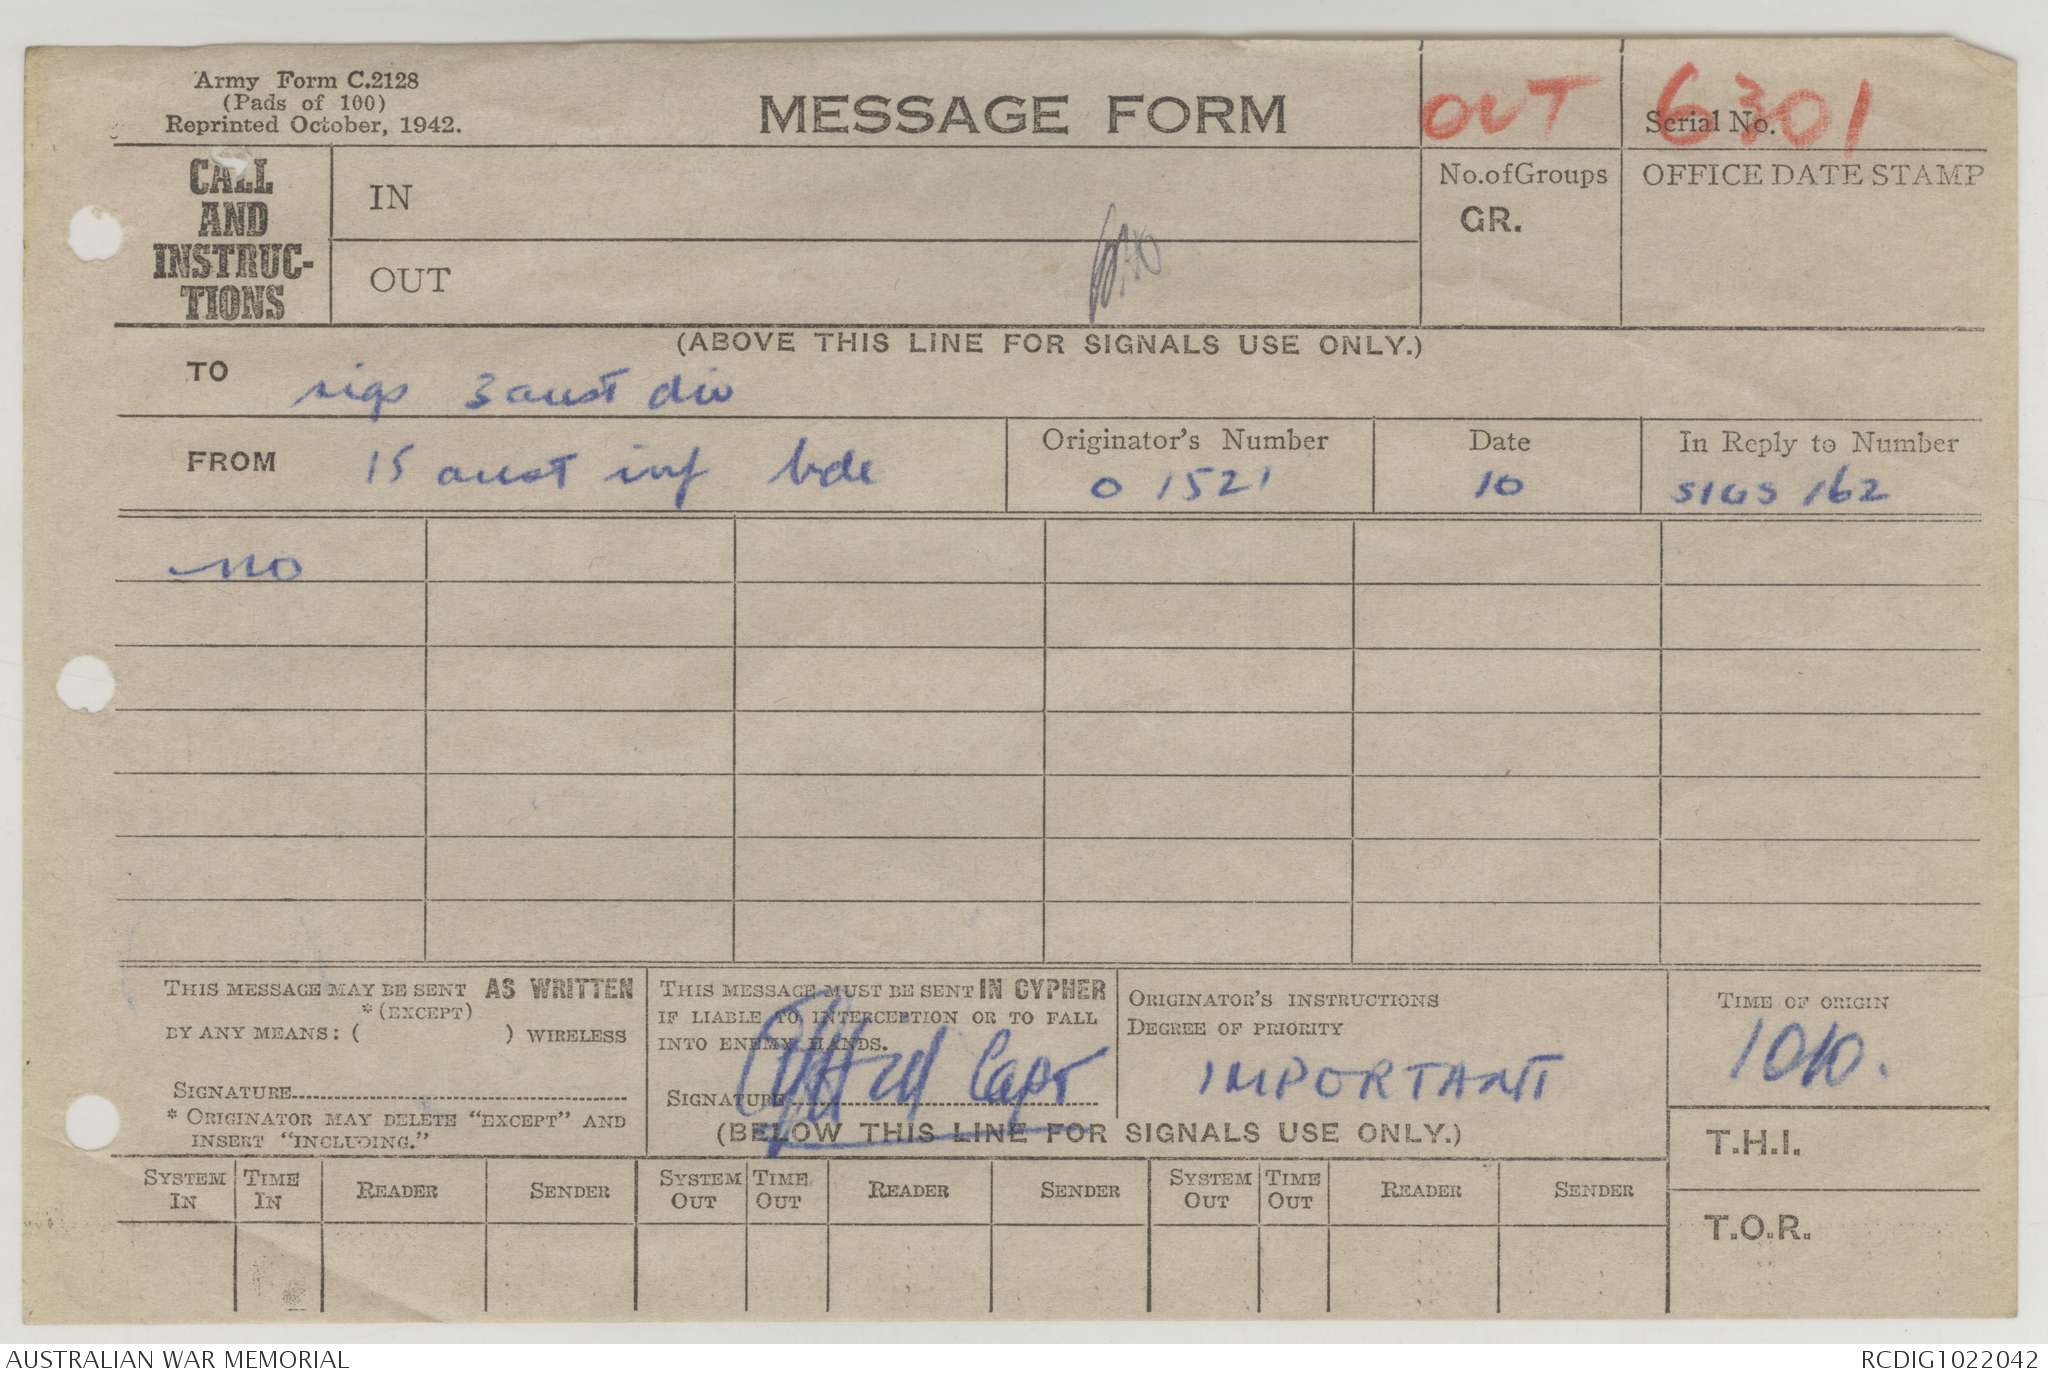 Army Form C.2128
(Pads of 100)
Reprinted October, 1942.
MESSAGE FORM
OUT
Serial No. 6301
CALL
AND
INSTRUC-
TIONS
IN
OUT
No. of Groups
GR.
OFFICE DATE STAMP
(ABOVE THIS LINE FOR SIGNALS USE ONLY.)
TO sigs 3 aust div
FROM 15 aust inf bde
Originator's Number
O 1521
Date
10
In Reply to Number
SIGS 162
no
THIS MESSAGE MAY BE SENT AS WRITTEN
*(EXCEPT)
BY ANY MEANS: ( ) WIRELESS
SIGNATURE
* ORIGINATOR MAY DELETE "EXCEPT" AND
INSERT "INCLUDING."
THIS MESSAGE MUST BE SENT IN CYPHER
IF LIABLE TO INTERCEPTION OR TO FALL
INTO ENEMY HANDS.
SIGNATURE Capt
ORIGINATOR'S INSTRUCTIONS
DEGREE OF PRIORITY
IMPORTANT
TIME OF ORIGIN
1010.
(BELOW THIS LINE FOR SIGNALS USE ONLY.)
T.H.I.
T.O.R.
SYSTEM IN
TIME IN
READER
SENDER
SYSTEM OUT
TIME OUT
READER
SENDER
SYSTEM OUT
TIME OUT
READER
SENDER
AUSTRALIAN WAR MEMORIAL
RCDIG1022042